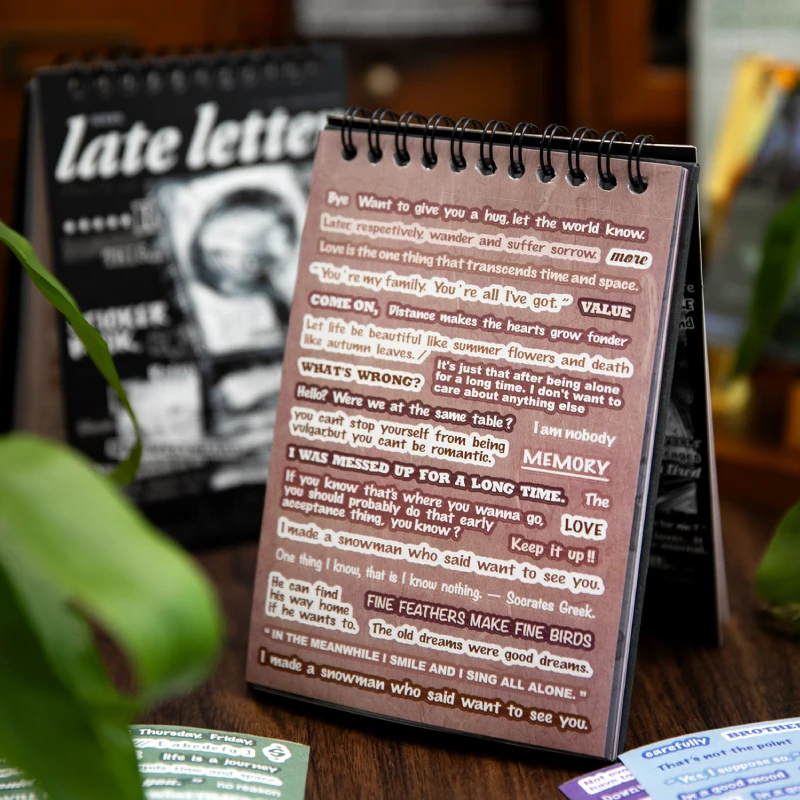 late letter
Bye Want to give you a hug, let the world know.
Later, respectively, wander and suffer sorrow. more
Love is the one thing that transcends time and space.
“You're my family. You're all I've got.” VALUE
COME ON, Distance makes the hearts grow fonder
Let life be beautiful like summer flowers and death
like autumn leaves./
WHAT'S WRONG?
It's just that after being alone
for a long time. I don't want to
care about anything else
Hello? Were we at the same table? I am nobody
you can't stop yourself from being
vulgarbut you cant be romantic.
MEMORY
I WAS MESSED UP FOR A LONG TIME. The
If you know that's where you wanna go,
you should probably do that early
acceptance thing, you know?
LOVE
Keep it up!!
I made a snowman who said want to see you.
One thing I know, that is I know nothing. — Socrates Greek.
He can find
his way home
if he wants to.
FINE FEATHERS MAKE FINE BIRDS
The old dreams were good dreams.
“IN THE MEANWHILE I SMILE AND I SING ALL ALONE.”
I made a snowman who said want to see you.
Thursday, Friday,
life is a journey
time and space
no reason
carefully BROTHER
That's not the point
Yes, I suppose so,
I'm a good mood